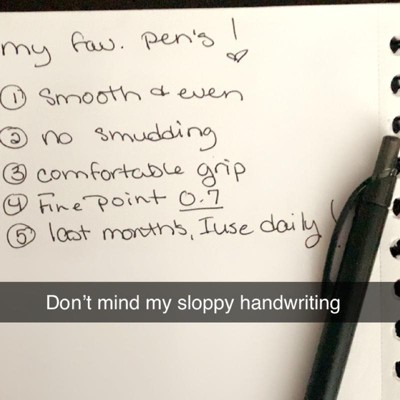 my fav. pen's !
① smooth & even
② no smudding
③ comfortable grip
④ Fine point 0.7
⑤ last month's, I use daily !
Don't mind my sloppy handwriting